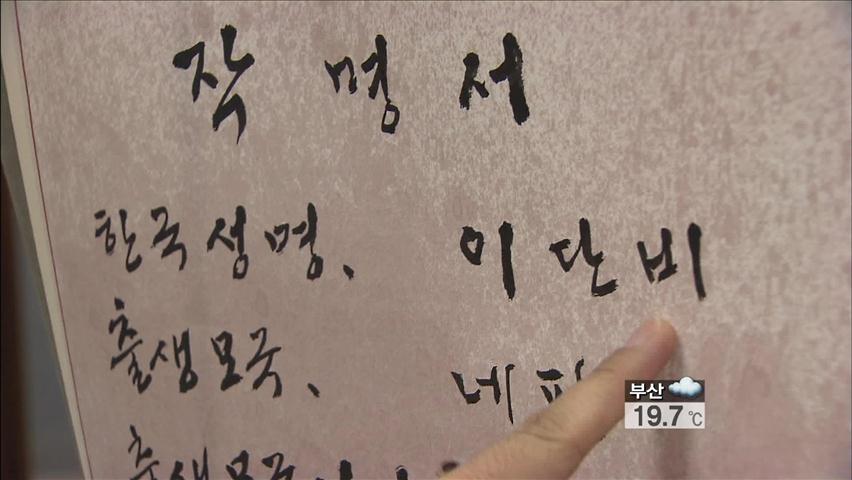 작명서
한국성명, 이단비
출생모국, 네
부산
19.7℃
출생모국